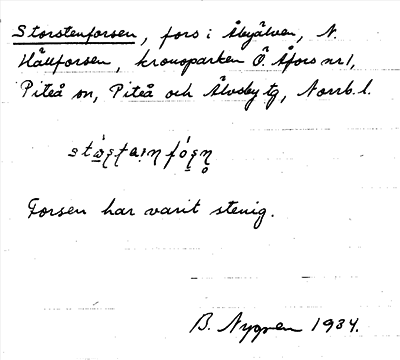 Storstenforsen, fors i Åbyälven, N.
Hällforsen, kronoparken Ö. Åfors nr 1,
Piteå sn, Piteå och Älvsby tg, Norrb. l.
Forsen har varit stenig.
B. Nygren 1934.